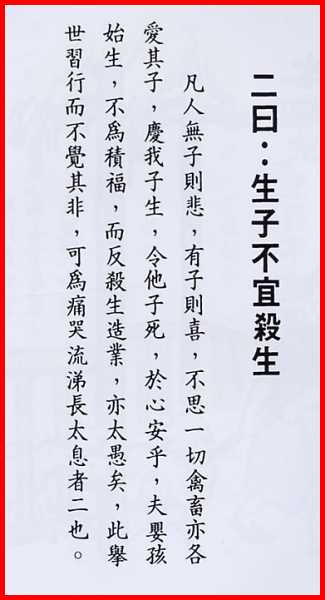 二曰：生子不宜殺生
凡人無子則悲，有子則喜，不思一切禽畜亦各
愛其子，慶我子生，令他子死，於心安乎，夫嬰孩
始生，不為積福，而反殺生造業，亦太愚矣，此舉
世習行而不覺其非，可為痛哭流涕長太息者二也。